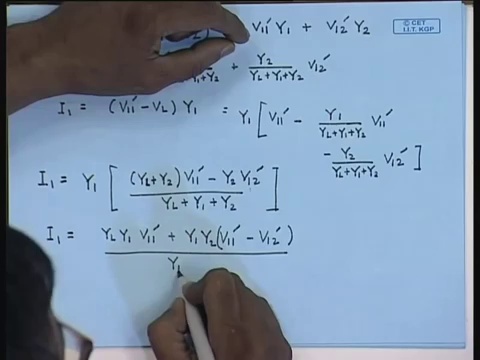 V11′ Y1 + V12′ Y2
© CET
I.I.T. KGP
Y1+Y2 + Y2/(YL+Y1+Y2) V12′
I1 = (V11′ − VL) Y1 = Y1 [ V11′ − Y1/(YL+Y1+Y2) V11′
− Y2/(YL+Y1+Y2) V12′ ]
I1 = Y1 [ ((YL+Y2) V11′ − Y2 V12′)/(YL + Y1 + Y2) ]
I1 = YL Y1 V11′ + Y1 Y2 (V11′ − V12′)
Y1